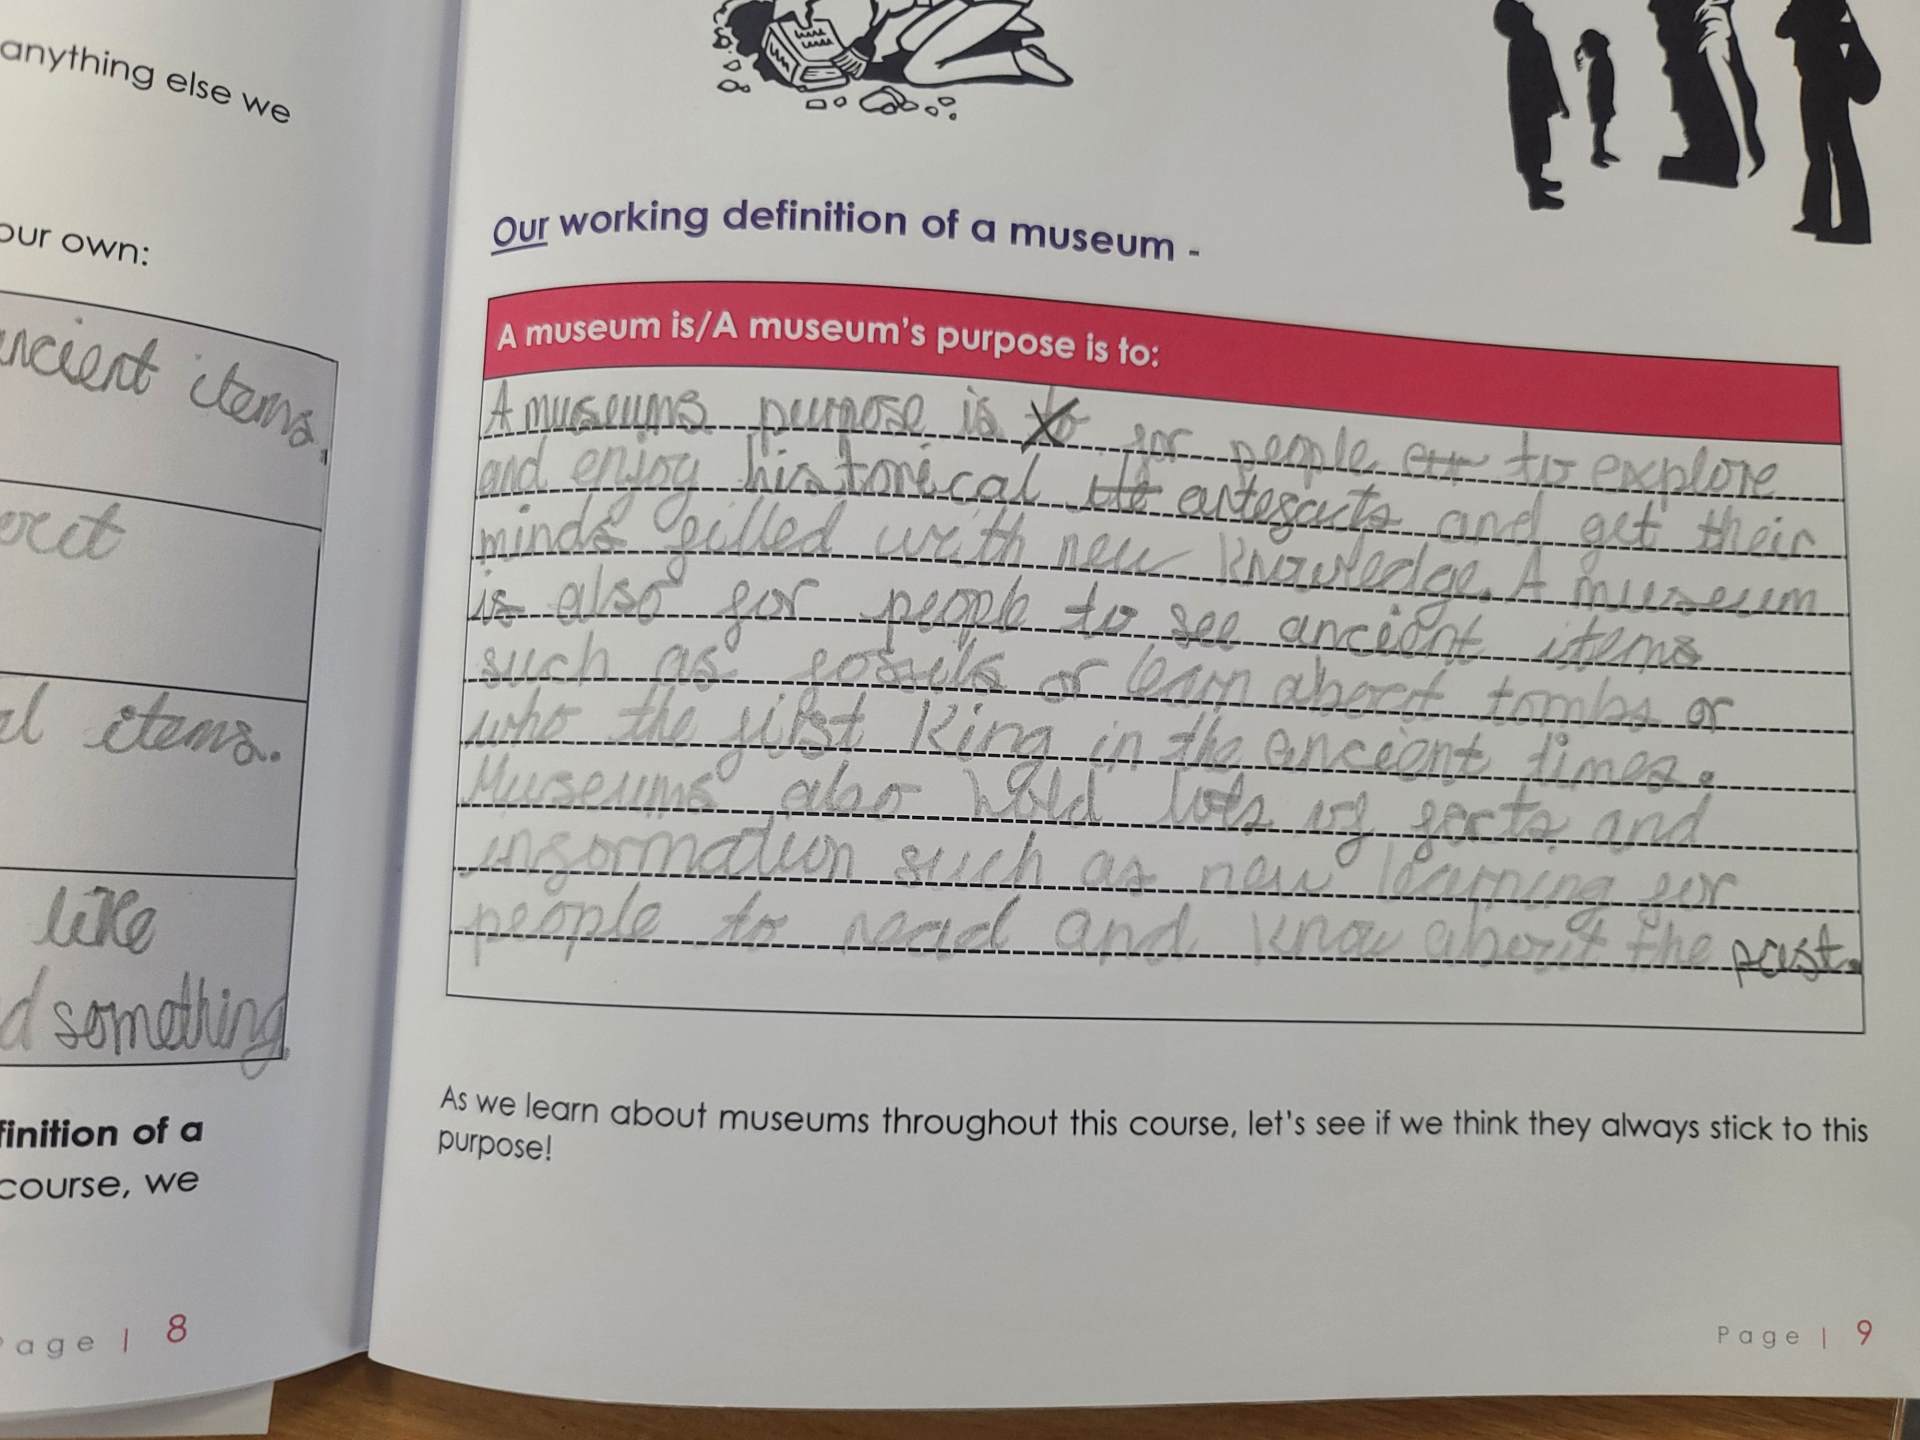 anything else we
our own:
ancient items.
out
al items.
like
d something.
finition of a
course, we
Page | 8
Our working definition of a museum -
A museum is/A museum's purpose is to:
A museums purpose is to for people to explore
and enjoy historical artefacts and get their
minds filled with new knowledge. A museum
is also for people to see ancient items
such as fossils or learn about tombs or
who the first king in the ancient times.
Museums also hold lots of facts and
information such as new learning for
people to read and know about the past.
As we learn about museums throughout this course, let's see if we think they always stick to this
purpose!
Page | 9